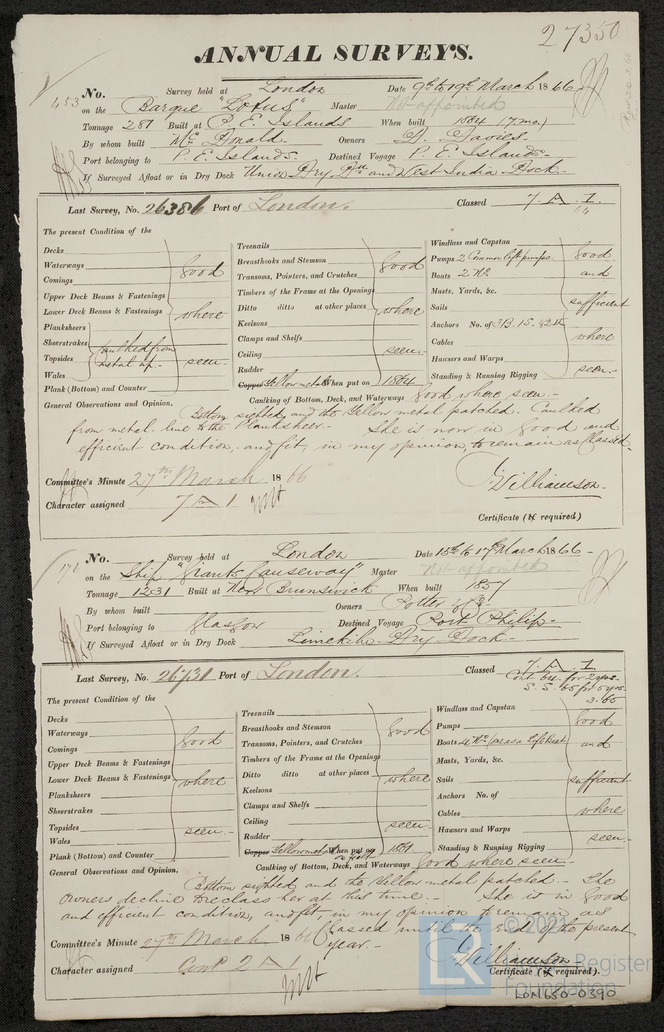 27350
ANNUAL SURVEYS.
No. 453 Survey held at London Date 9th to 19th March 1866
on the Barque "Lotus" Master Not appointed
Tonnage 281 Built at P. E. Islands When built 1864 (7 mo.)
By whom built McDonald Owners Davies.
Port belonging to P. E. Islands. Destined Voyage P. E. Islands.
If Surveyed Afloat or in Dry Dock Union Dry Dk and West India Dock.
Last Survey, No. 26386 Port of London. Classed 7. A. 1.
64
The present Condition of the
Decks
Waterways
Comings
Upper Deck Beams & Fastenings
Lower Deck Beams & Fastenings
Planksheers
Sheerstrakes
Topsides
Wales
Plank (Bottom) and Counter
good
where
seen
caulked from
metal up.
Treenails
Breasthooks and Stemson
Transoms, Pointers, and Crutches
Timbers of the Frame at the Openings
Ditto ditto at other places
Keelsons
Clamps and Shelfs
Ceiling
Rudder
Copper Yellow metal When put on 1864
good
where
seen.
Windlass and Capstan
Pumps 2 Common lift pumps.
Boats 2 No
Masts, Yards, &c.
Sails
Anchors No. of 3B. 1S. 42K
Cables
Hawsers and Warps
Standing & Running Rigging
good
and
sufficient
where
seen.
Caulking of Bottom, Deck, and Waterways Good where seen.
General Observations and Opinion, Bottom sighted, and the Yellow metal patched. Caulked
from metal line to the Planksheer. She is now in good and
efficient condition, and fit, in my opinion, to remain as Classed.
Committee's Minute 27th March 1866
Character assigned 7 A 1
Williamson.
Certificate (if required)
No. 176 Survey held at London Date 15th to 17th March 1866
on the Ship "Giants Causeway" Master Not appointed
Tonnage 1231 Built at New Brunswick When built 1857
By whom built Owners Potter & Co.
Port belonging to Glasgow Destined Voyage Port Philip.
If Surveyed Afloat or in Dry Dock Limekiln Dry Dock.
Last Survey, No. 26731 Port of London. Classed 7. A. 1.
Cont. 64 for 2 yrs.
S. S. 65 for 5 yrs.
3.65
The present Condition of the
Decks
Waterways
Comings
Upper Deck Beams & Fastenings
Lower Deck Beams & Fastenings
Planksheers
Sheerstrakes
Topsides
Wales
Plank (Bottom) and Counter
good
where
seen.
Treenails
Breasthooks and Stemson
Transoms, Pointers, and Crutches
Timbers of the Frame at the Openings
Ditto ditto at other places
Keelsons
Clamps and Shelfs
Ceiling
Rudder
Copper Yellow metal When put on 1864
good
where
seen.
Windlass and Capstan
Pumps
Boats 4 No Life Boat
Masts, Yards, &c.
Sails
Anchors No. of
Cables
Hawsers and Warps
Standing & Running Rigging
good
and
sufficient
where
seen.
Caulking of Bottom, Deck, and Waterways Good where seen.
General Observations and Opinion, Bottom sighted and the Yellow metal patched. The
Owners decline to reclass her at this time. She is in good
and efficient condition, and fit in my opinion to remain as
Classed until the end of the present
year.
Committee's Minute 27th March 1866
Character assigned Cont 2 A 1
Williamson
Certificate (if required).
© 2021
LR
Register
Foundation
LON650-0390